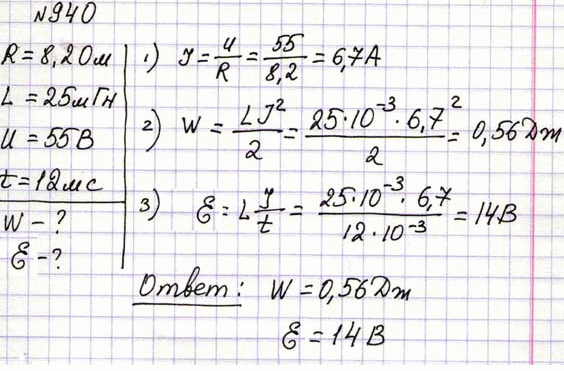 №940
R = 8,2 Ом
L = 25 мГн
U = 55 В
t = 12 мс
W – ?
Ɛ – ?
1) J = U/R = 55/8,2 = 6,7 А
2) W = LJ²/2 = 25·10⁻³·6,7²/2 = 0,56 Дж
3) Ɛ = L J/t = 25·10⁻³·6,7/12·10⁻³ = 14 В
Ответ: W = 0,56 Дж
Ɛ = 14 В